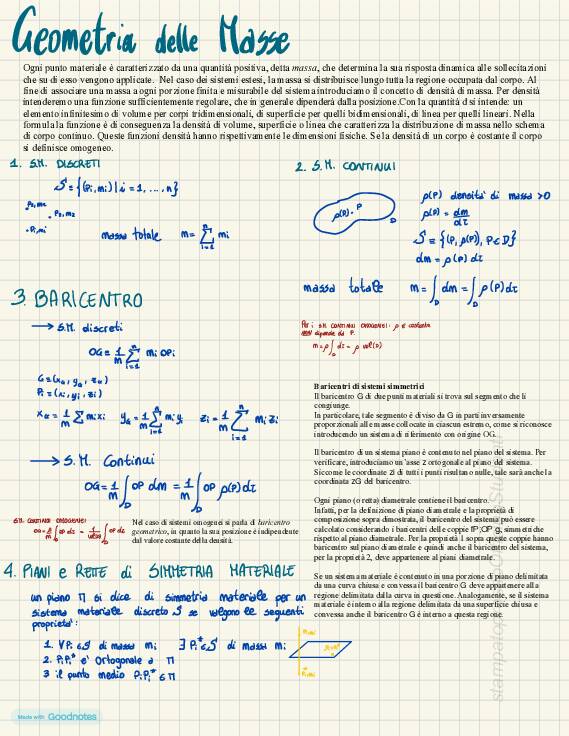 Geometria delle Masse
Ogni punto materiale è caratterizzato da una quantità positiva, detta massa, che determina la sua risposta dinamica alle sollecitazioni
che su di esso vengono applicate. Nel caso dei sistemi estesi, la massa si distribuisce lungo tutta la regione occupata dal corpo. Al
fine di associare una massa a ogni porzione finita e misurabile del sistema introduciamo il concetto di densità di massa. Per densità
intenderemo una funzione sufficientemente regolare, che in generale dipenderà dalla posizione.Con la quantità d si intende: un
elemento infinitesimo di volume per corpi tridimensionali, di superficie per quelli bidimensionali, di linea per quelli lineari. Nella
formula la funzione è di conseguenza la densità di volume, superficie o linea che caratterizza la distribuzione di massa nello schema
di corpo continuo. Queste funzioni densità hanno rispettivamente le dimensioni fisiche. Se la densità di un corpo è costante il corpo
si definisce omogeneo.
1. S.M. DISCRETI
S = {(Pi, mi) | i = 1, ..., n}
P2, m2
Pi, mi
massa totale m = Σ mi
i=1
n
2. S.M. CONTINUI
ρ(P) . P
D
ρ(P) densità di massa >0
ρ(P) = dm/dτ
S = {(P, ρ(P)), P ∈ D}
dm = ρ(P) dτ
massa totale m = ∫D dm = ∫D ρ(P) dτ
Per i S.M. CONTINUI OMOGENEI: ρ è costante
m = ρ ∫D dτ = ρ vol(D)
3. BARICENTRO
→ S.M. discreti
OG = 1/m Σ mi OPi
G = (xG, yG, zG)
Pi = (xi, yi, zi)
xG = 1/m Σ mi xi yG = 1/m Σ mi yi zi = 1/m Σ mi zi
→ S.M. Continui
OG = 1/m ∫D OP dm = 1/m ∫D OP ρ(P) dτ
S.M. CONTINUI OMOGENEI:
Nel caso di sistemi omogenei si parla di baricentro
geometrico, in quanto la sua posizione è indipendente
dal valore costante della densità.
Baricentri di sistemi simmetrici
Il baricentro G di due punti materiali si trova sul segmento che li
congiunge.
In particolare, tale segmento è diviso da G in parti inversamente
proporzionali alle masse collocate in ciascun estremo, come si riconosce
introducendo un sistema di riferimento con origine OG.
Il baricentro di un sistema piano è contenuto nel piano del sistema. Per
verificare, introduciamo un'asse z ortogonale al piano del sistema.
Siccome le coordinate Zi di tutti i punti risultano nulle, tale sarà anche la
coordinata zG del baricentro.
Ogni piano (o retta) diametrale contiene il baricentro.
Infatti, per la definizione di piano diametrale e la proprietà di
composizione sopra dimostrata, il baricentro del sistema può essere
calcolato considerando i baricentri delle coppie simmetriche
rispetto al piano diametrale. Per la proprietà 1 sopra queste coppie hanno
baricentro sul piano diametrale e quindi anche il baricentro del sistema,
per la proprietà 2, deve appartenere al piani diametrale.
Se un sistema materiale è contenuto in una porzione di piano delimitata
da una curva chiusa e convessa il baricentro G deve appartenere alla
regione delimitata dalla curva in questione. Analogamente, se il sistema
materiale è interno alla regione delimitata da una superficie chiusa e
convessa anche il baricentro G è interno a questa regione.
4. PIANI e RETTE di SIMMETRIA MATERIALE
un piano π si dice di simmetria materiale per un
sistema materiale discreto S se valgono le seguenti
proprietà:
1. ∀Pi ∈ S di massa mi ∃ Pi* ∈ S di massa mi
2. PiPi* è Ortogonale a π
3 il punto medio PiPi* ∈ π
Made with Goodnotes